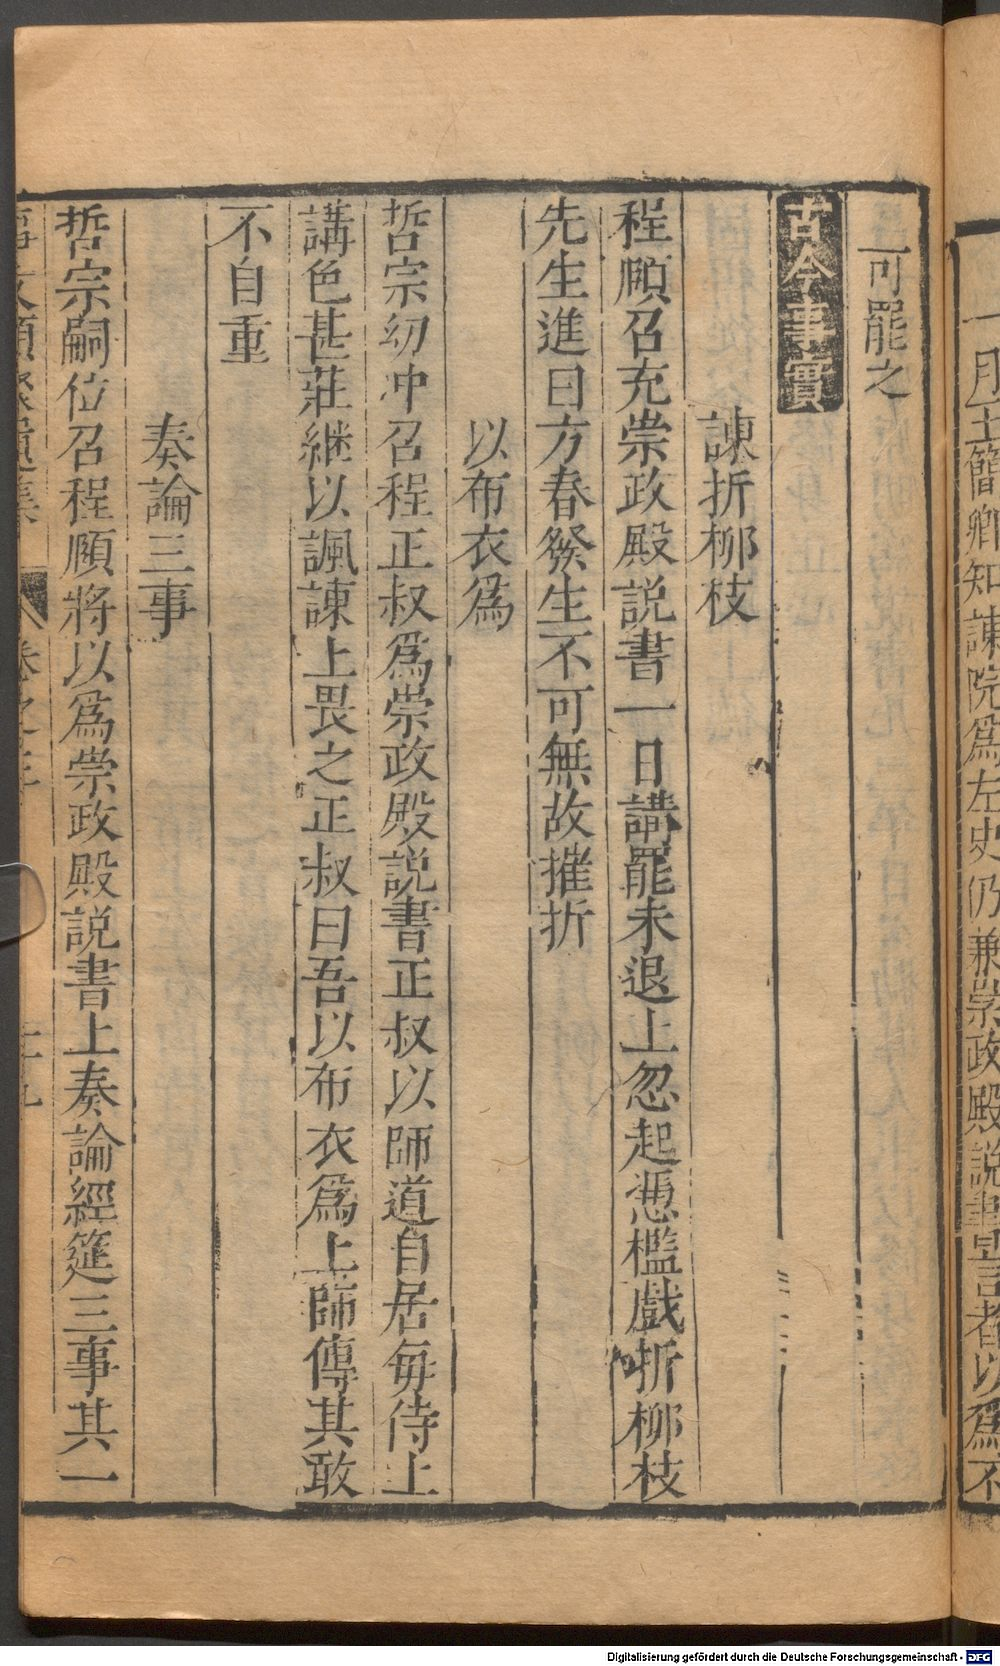 一月王簡卿知諫院爲左史仍兼崇政殿說書言者以爲不
可罷之
古今事實
諫折柳枝
程頤召充崇政殿説書一日講罷未退上忽起憑檻戲折柳枝
先生進曰方春發生不可無故摧折
以布衣爲
哲宗幼冲召程正叔爲崇政殿説書正叔以師道自居每侍上
講色甚莊繼以諷諫上畏之正叔曰吾以布衣爲上師傅其敢
不自重
奏論三事
哲宗嗣位召程頤將以爲崇政殿説書上奏論經筵三事其一
Digitalisierung gefördert durch die Deutsche Forschungsgemeinschaft - DFG